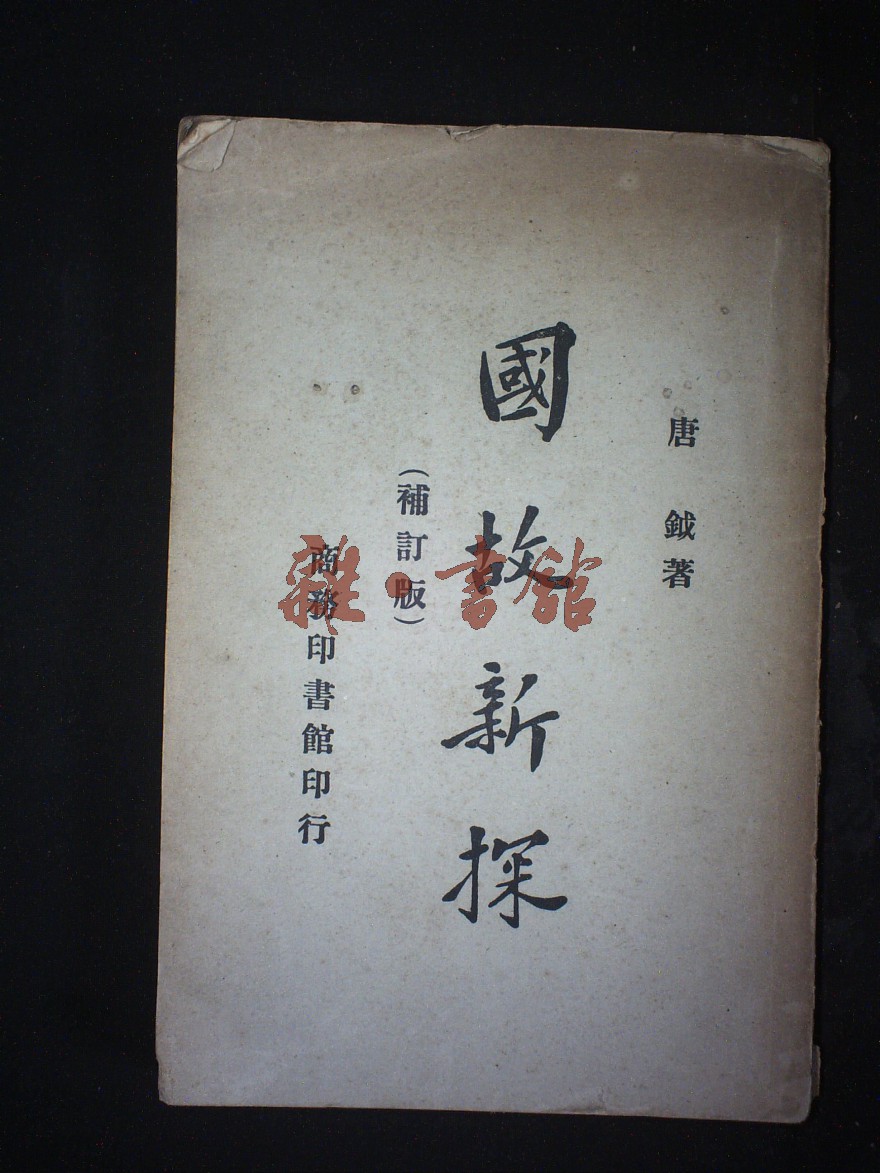 唐鉞著
國故新探
（補訂版）
商務印書館印行
雜·書館